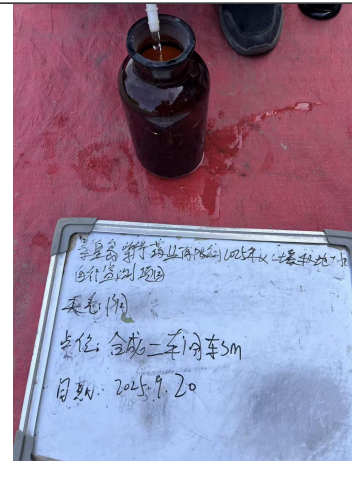 药业有限公司2025年 土壤和地下水
自行监测项目
天气：阴
点位：合成二车间东5m
日期：2025.9.20